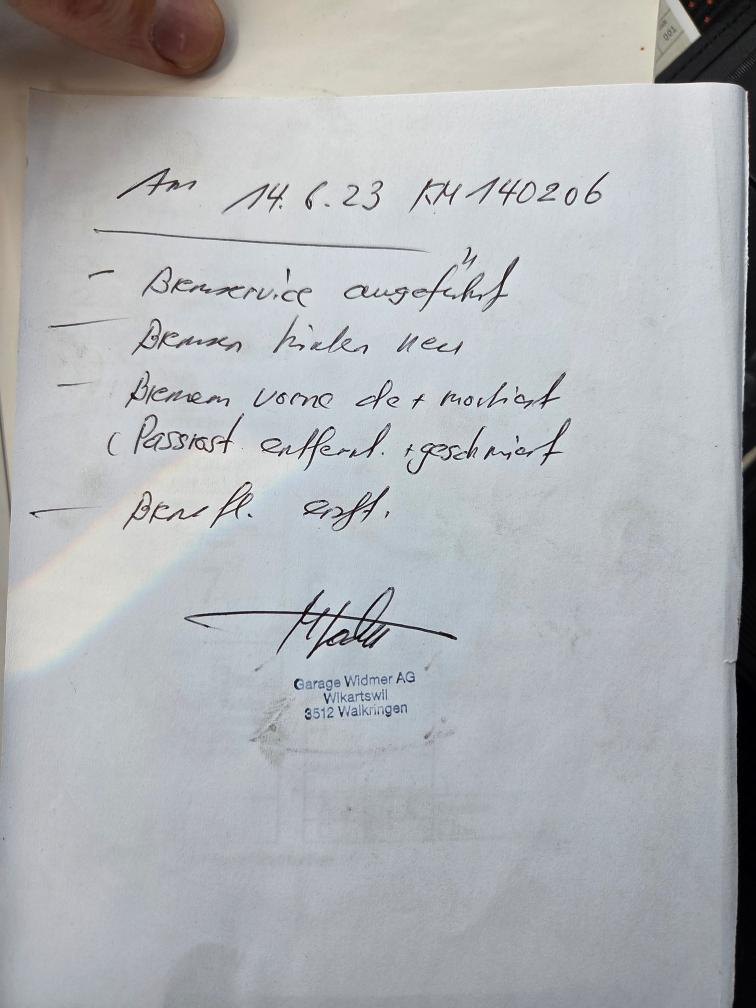 Am 14.6.23 KM 140206
- Bremservice ausgeführt
- Bremsen hinten neu
- Bremsen vorne de + montiert
( Passrost entfernt. + geschmiert
- Bremsfl. ers.
Garage Widmer AG
Wikartswil
3512 Walkringen
001